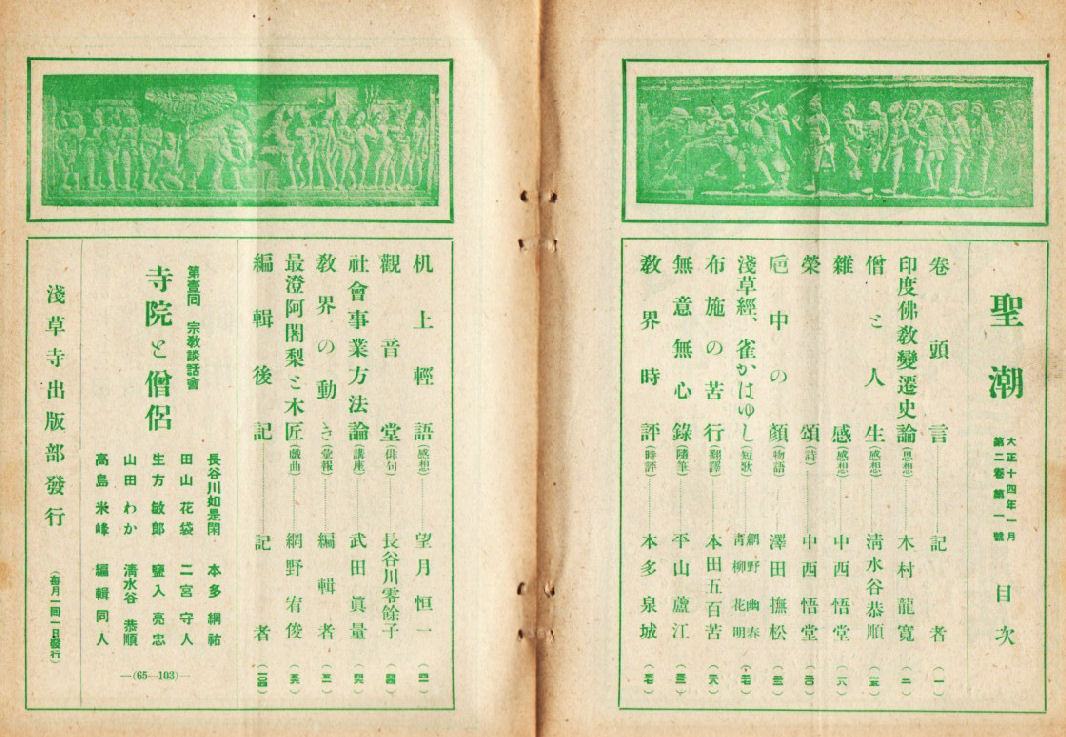 聖潮
大正十四年一月
第二巻第一號
目次
卷頭言 記者 (一)
印度佛教變遷史論(思想) 木村龍寛 (二)
僧と人生(感想) 清水谷恭順
雜感(感想) 中西悟堂 (一八)
榮頌(詩) 中西悟堂
卮中の顔(物語) 澤田撫松
淺草經、雀かはゆし(短歌) 網野幽春 青柳花明
布施の苦行(翻譯) 本田五百苦
無意無心錄(隨筆) 平山蘆江
教界時評(時評) 本多泉城
机上輕語(感想) 望月恒一
觀音堂(俳句) 長谷川零餘子
社會事業方法論(講座) 武田眞量
教界の動き(彙報) 編輯者
最澄阿闍梨と木匠(戲曲) 網野宥俊
編輯後記 記者
第壹回 宗教談話會
寺院と僧侶
長谷川如是閑 本多綱祐
田山花袋 二宮守人
生方敏郎 鹽入亮忠
山田わか 清水谷恭順
高島米峰 編輯同人
—(65—103)—
淺草寺出版部發行
(毎月一回一日發行)